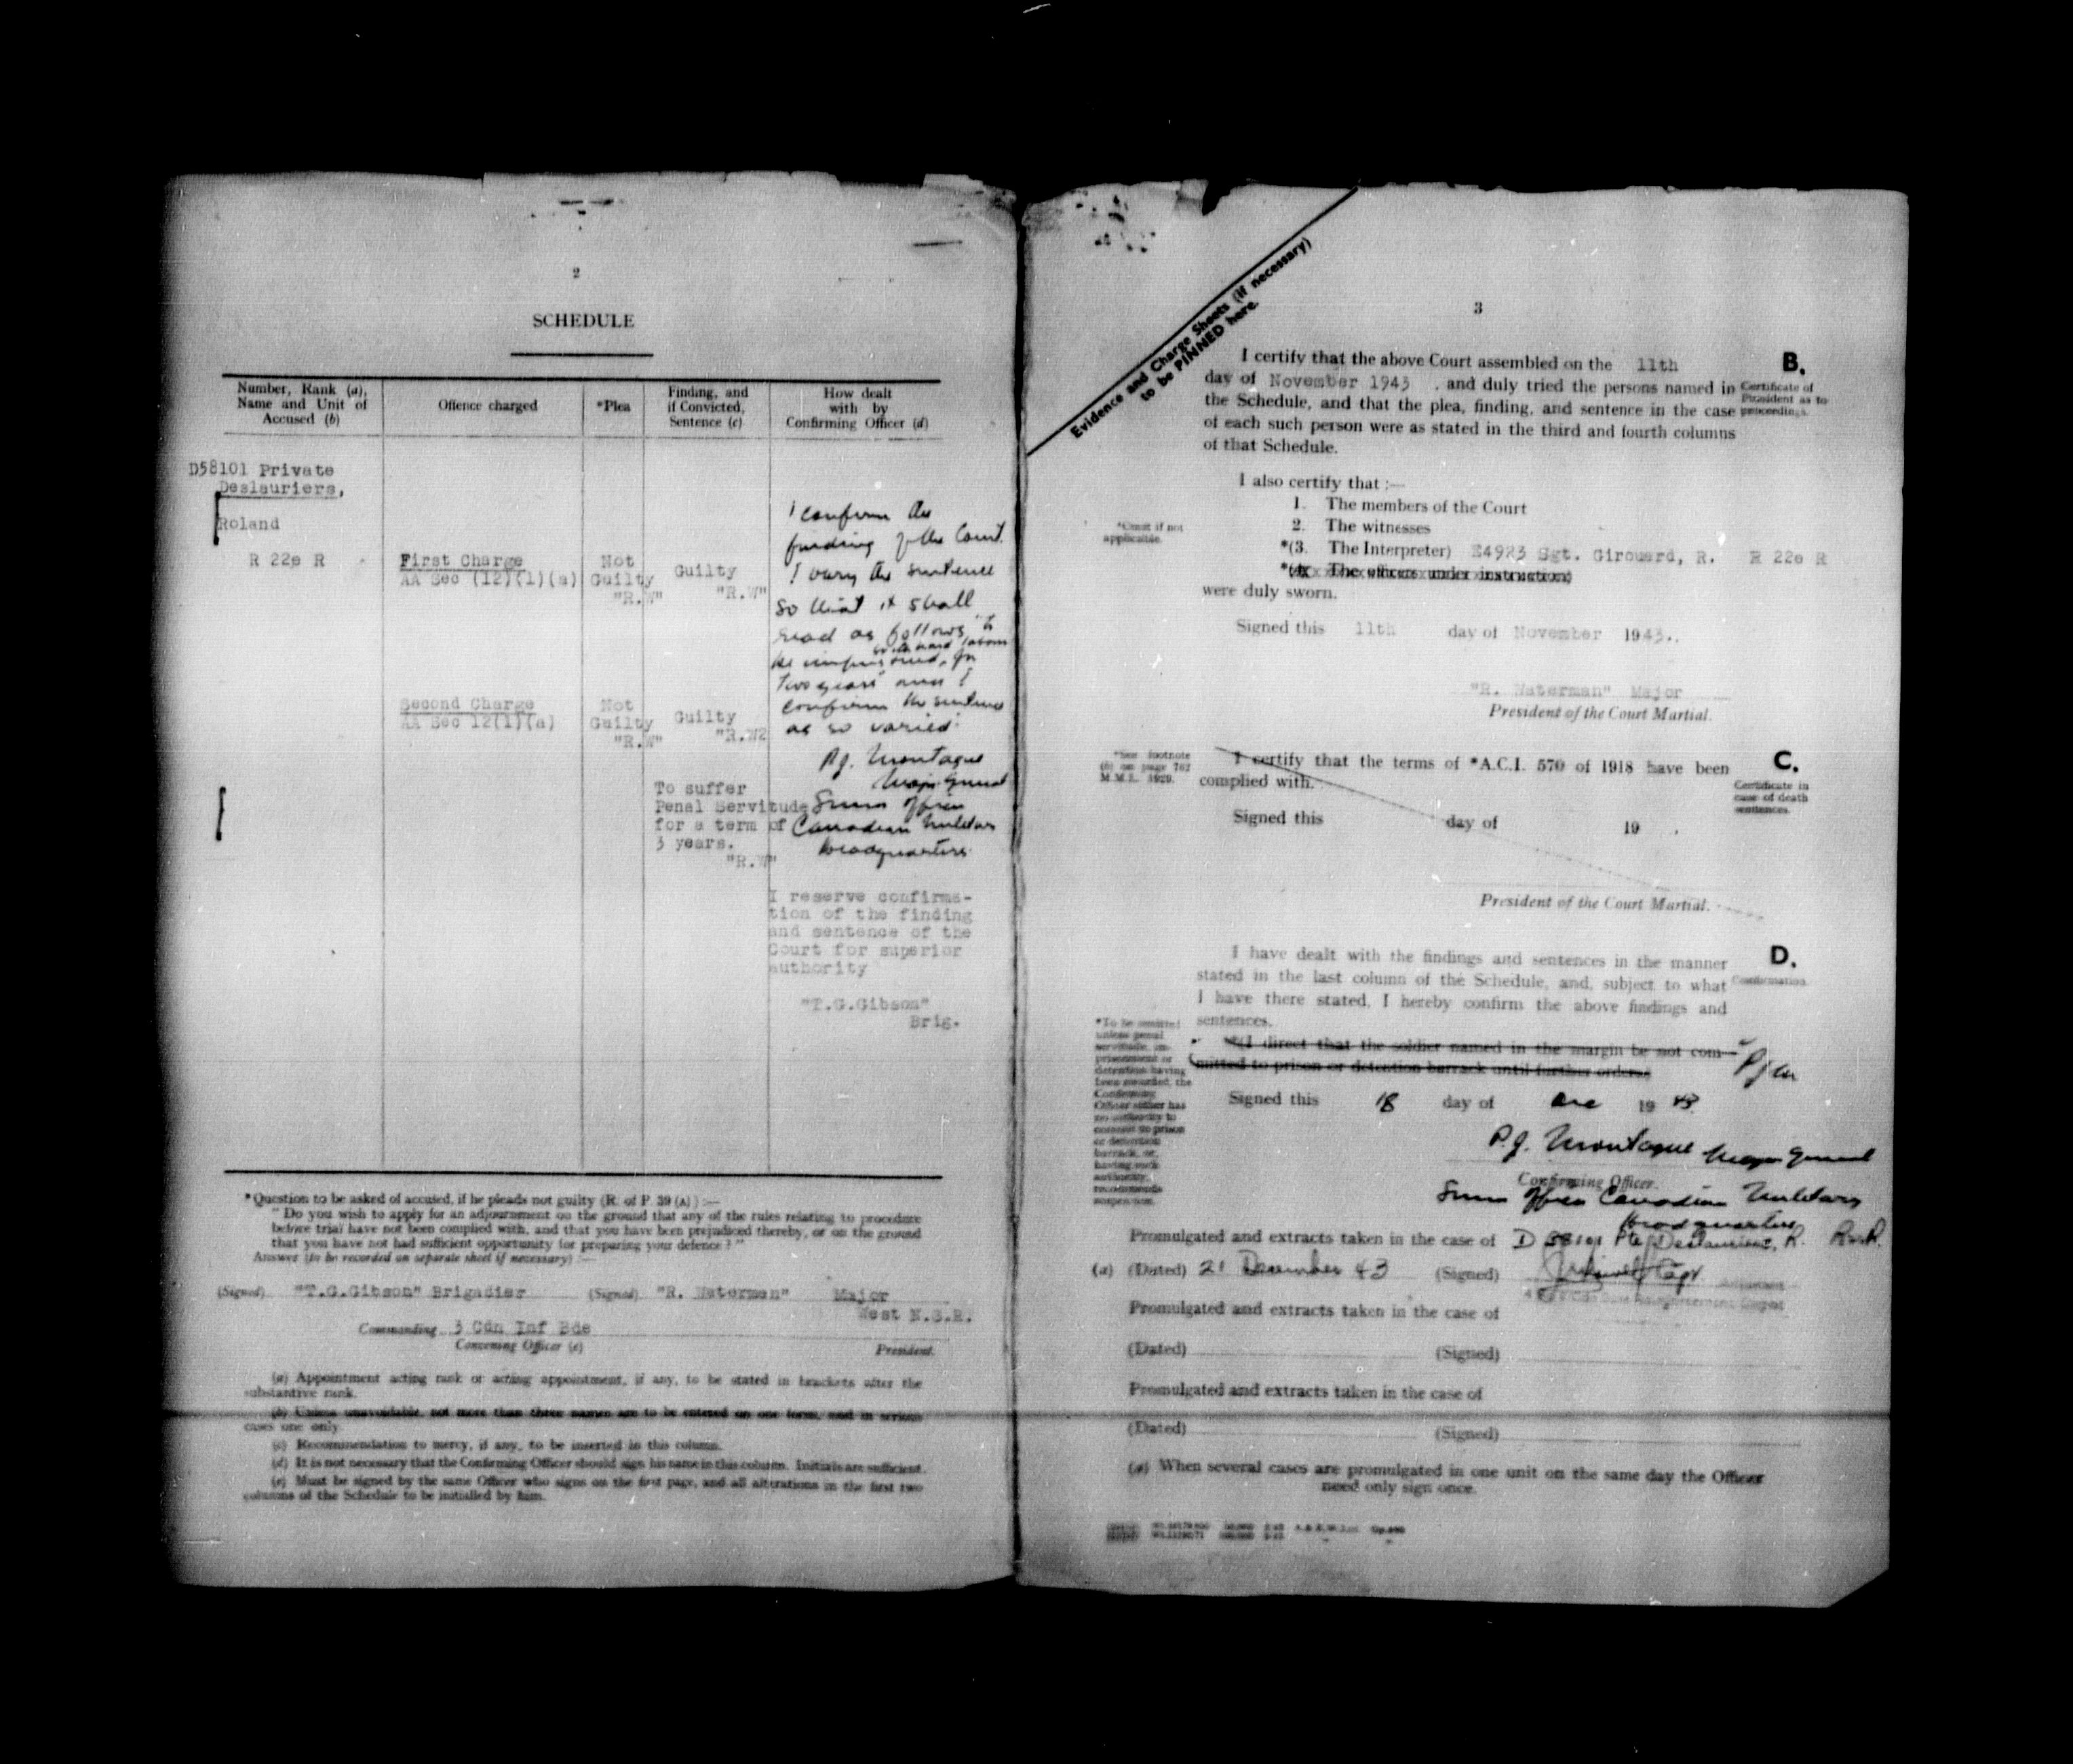 2
SCHEDULE
Number, Rank (a), Name and Unit of Accused (b)
Offence charged
*Plea
Finding, and if Convicted, Sentence (c)
How dealt with by Confirming Officer (d)
D58101 Private
Deslauriers,
Roland
R 22e R
First Charge
AA Sec (12)(1)(a)
Not
Guilty
"R.W"
Guilty
"R.W"
Second Charge
AA Sec 12(1)(a)
Not
Guilty
"R.W"
Guilty
"R.W2
To suffer
Penal Servitude
for a term of
3 years.
"R.W"
I confirm the
finding of the Court.
I vary the sentence
so that it shall
read as follows "to
be imprisoned with hard labour for
two years" and I
confirm the sentence
as so varied.
P.J. Montague
Major General
Senior Officer
Canadian Military
Headquarters
I reserve confirma-
tion of the finding
and sentence of the
Court for superior
authority
"T.G.Gibson"
Brig.
*Question to be asked of accused, if he pleads not guilty (R. of P. 39 (A)) :—
" Do you wish to apply for an adjournment on the ground that any of the rules relating to procedure
before trial have not been complied with, and that you have been prejudiced thereby, or on the ground
that you have not had sufficient opportunity for preparing your defence ? "
Answer (to be recorded on separate sheet if necessary) :—
(Signed) "T.G.Gibson" Brigadier (Signed) "R. Waterman" Major
West N.S.R.
Commanding 3 Cdn Inf Bde
Convening Officer (e) President.
(a) Appointment acting rank or acting appointment, if any, to be stated in brackets after the
substantive rank.
(b) Unless unavoidable, not more than three names are to be entered on one form, and in serious
cases one only.
(c) Recommendation to mercy, if any, to be inserted in this column.
(d) It is not necessary that the Confirming Officer should sign his name in this column. Initials are sufficient.
(e) Must be signed by the same Officer who signs on the first page, and all alterations in the first two
columns of the Schedule to be initialled by him.
Evidence and Charge Sheets (if necessary)
to be PINNED here.
3
B.
Certificate of
President as to
proceedings.
I certify that the above Court assembled on the 11th
day of November 1943 , and duly tried the persons named in
the Schedule, and that the plea, finding, and sentence in the case
of each such person were as stated in the third and fourth columns
of that Schedule.
I also certify that :—
1. The members of the Court
2. The witnesses
*Omit if not
applicable.
*(3. The Interpreter) E4923 Sgt. Girouard, R. R 22e R
*(4. The officers under instruction)
were duly sworn.
Signed this 11th day of November 1943..
"R. Waterman" Major
President of the Court Martial.
*See footnote
(b) on page 767
M.M.L. 1929.
C.
Certificate in
case of death
sentences.
I certify that the terms of *A.C.I. 570 of 1918 have been
complied with.
Signed this day of 19 .
President of the Court Martial.
D.
Confirmation.
I have dealt with the findings and sentences in the manner
stated in the last column of the Schedule, and, subject to what
I have there stated, I hereby confirm the above findings and
sentences.
*To be omitted
unless penal
servitude, im-
prisonment or
detention having
been awarded, the
Confirming
Officer either has
no authority to
commit to prison
or detention
barrack, or,
having such
authority,
recommends
suspension.
*(I direct that the soldier named in the margin be not com-
mitted to prison or detention barrack until further orders.)
PJM
Signed this 18 day of Dec 1943
P.J. Montague Major General
Confirming Officer.
Senior Officer Canadian Military
Headquarters
Promulgated and extracts taken in the case of D 58101 Pte Deslauriers, R.
(a) (Dated) 21 December 43 (Signed) Capt
Promulgated and extracts taken in the case of
(Dated) (Signed)
Promulgated and extracts taken in the case of
(Dated) (Signed)
(a) When several cases are promulgated in one unit on the same day the Officer
need only sign once.